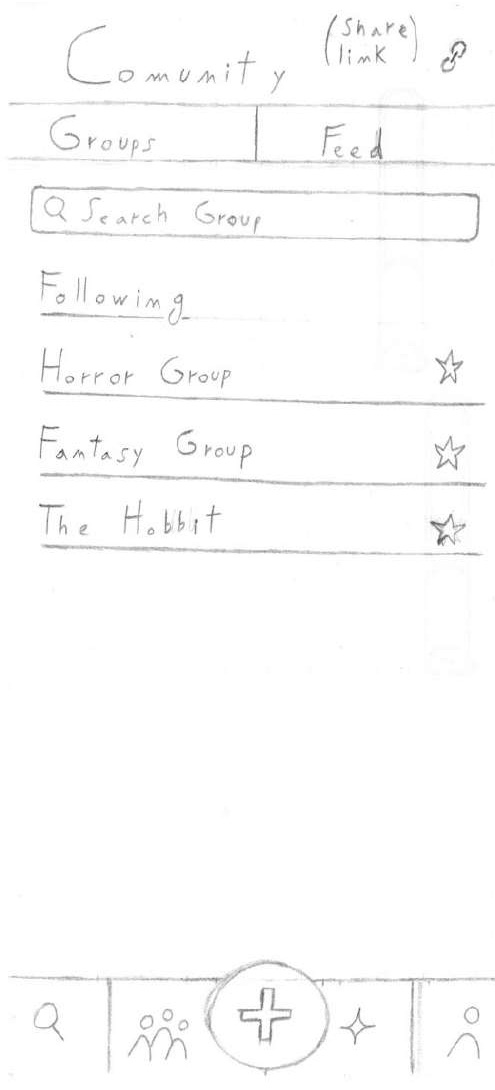 Comunity
(Share link)
Groups
Feed
Search Group
Following
Horror Group
Fantasy Group
The Hobbit